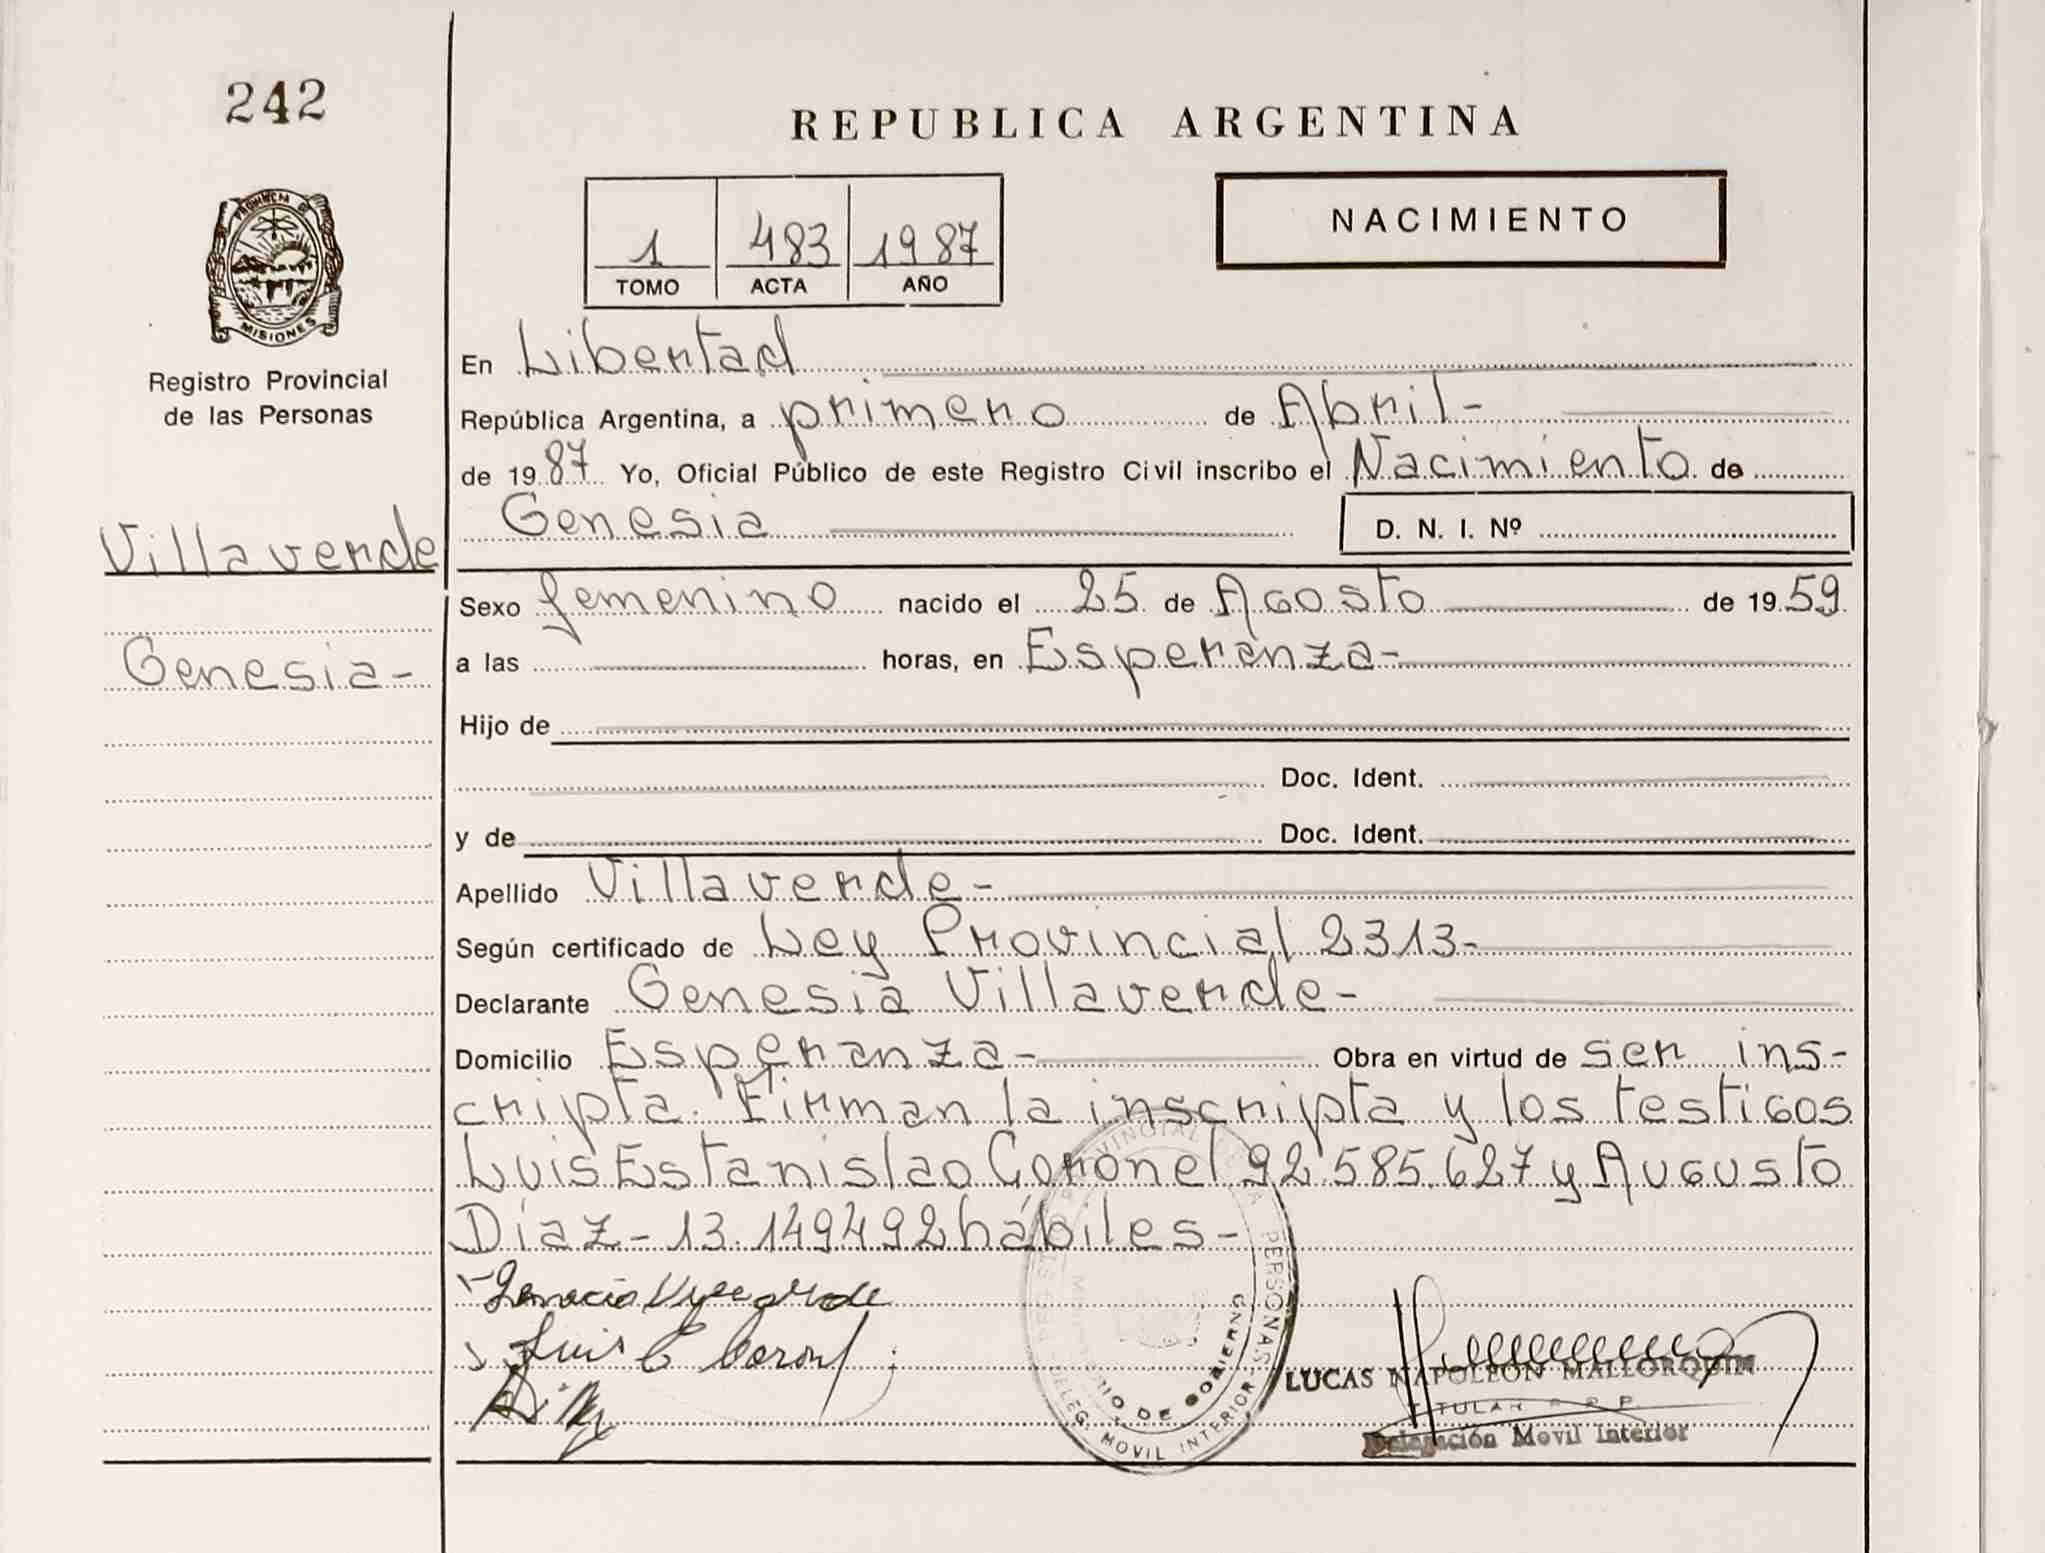 242
REPUBLICA ARGENTINA
1 483 1987
TOMO ACTA AÑO
NACIMIENTO
PROVINCIA DE
MISIONES
Registro Provincial
de las Personas
En Libertad
República Argentina, a primero de Abril-
de 1987 Yo, Oficial Público de este Registro Civil inscribo el Nacimiento de
Genesia D. N. I. Nº
Villaverde
Genesia-
Sexo femenino nacido el 25 de Agosto de 1959
a las horas, en Esperanza-
Hijo de
Doc. Ident.
y de Doc. Ident.
Apellido Villaverde-
Según certificado de Ley Provincial 2313-
Declarante Genesia Villaverde-
Domicilio Esperanza- Obra en virtud de ser ins-
cripta. Firman la inscripta y los testigos
Luis Estanislao Coronel 92.585.627 y Augusto
Díaz- 13.149492 hábiles-
Luis E Coronel
PROVINCIAL PERSONAS
DELEG. MOVIL INTERIOR-
MINISTERIO DE GOBIERNO
LUCAS NAPOLEON MALLORQUIN
TITULAR R. P. P.
Delegación Movil Interior